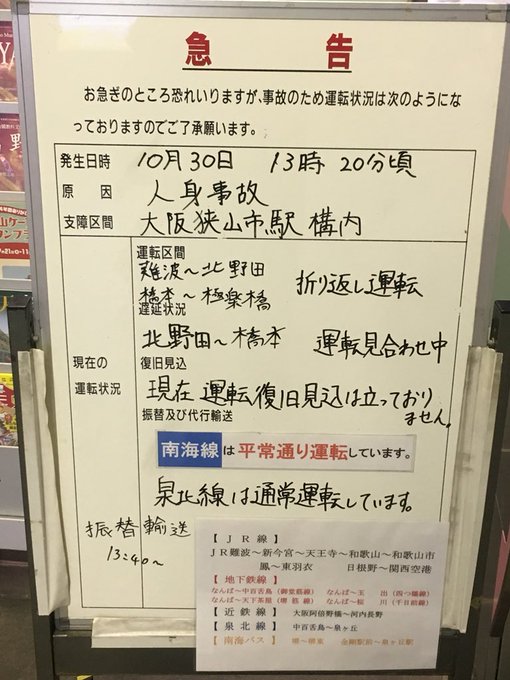 急告
お急ぎのところ恐れいりますが、事故のため運転状況は次のようにな
っておりますのでご了承願います。
発生日時 10月30日 13時20分頃
原因 人身事故
支障区間 大阪狭山市駅構内
現在の運転状況
運転区間
難波～北野田
橋本～極楽橋 折り返し運転
遅延状況
北野田～橋本 運転見合わせ中
復旧見込
現在 運転復旧見込は立っており
ません。
振替及び代行輸送
南海線は平常通り運転しています。
泉北線は通常運転しています。
振替輸送
13:40～
【JR線】
JR難波～新今宮～天王寺～和歌山～和歌山市
鳳～東羽衣 日根野～関西空港
【地下鉄線】
なんば～中百舌鳥(御堂筋線) なんば～玉出(四つ橋線)
なんば～天下茶屋(堺筋線) なんば～桜川(千日前線)
【近鉄線】 大阪阿倍野橋～河内長野
【泉北線】 中百舌鳥～泉ヶ丘
【南海バス】 堺～堺東 金剛駅前～泉ヶ丘駅